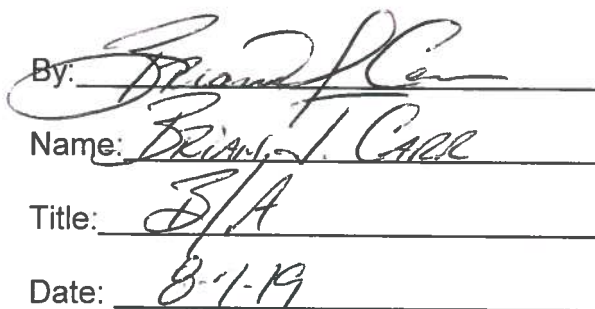 By: Brian J Carr
Name: BRIAN J. CARR
Title: B/A
Date: 8-1-19